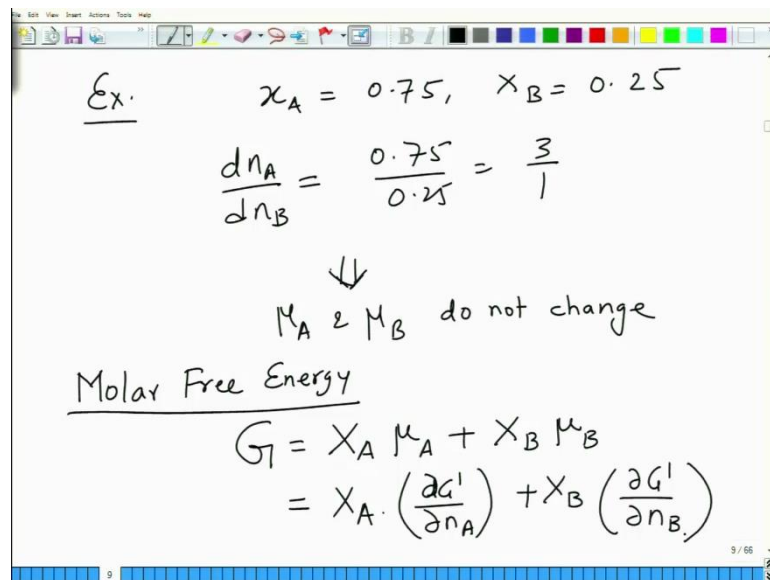 File Edit View Insert Actions Tools Help
B I
Ex. x_A = 0.75, X_B = 0.25
dn_A / dn_B = 0.75 / 0.25 = 3 / 1
⇓
μ_A & μ_B do not change
Molar Free Energy
G = X_A μ_A + X_B μ_B
= X_A . (∂G' / ∂n_A) + X_B (∂G' / ∂n_B.)
9 / 66
9